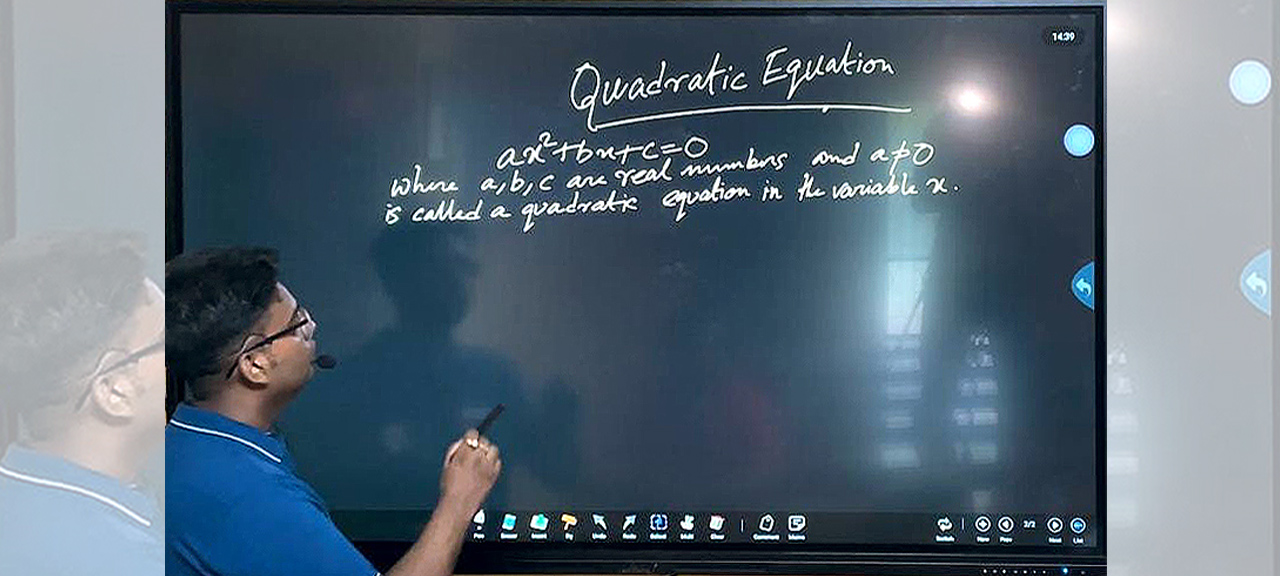 14:39
Quadratic Equation
ax²+bx+c=0
where a, b, c are real numbers and a≠0
is called a quadratic equation in the variable x.
Pen Eraser Insert Undo Redo Select Multi Clear Comment Menu Switch New Prev 2/2 Next List